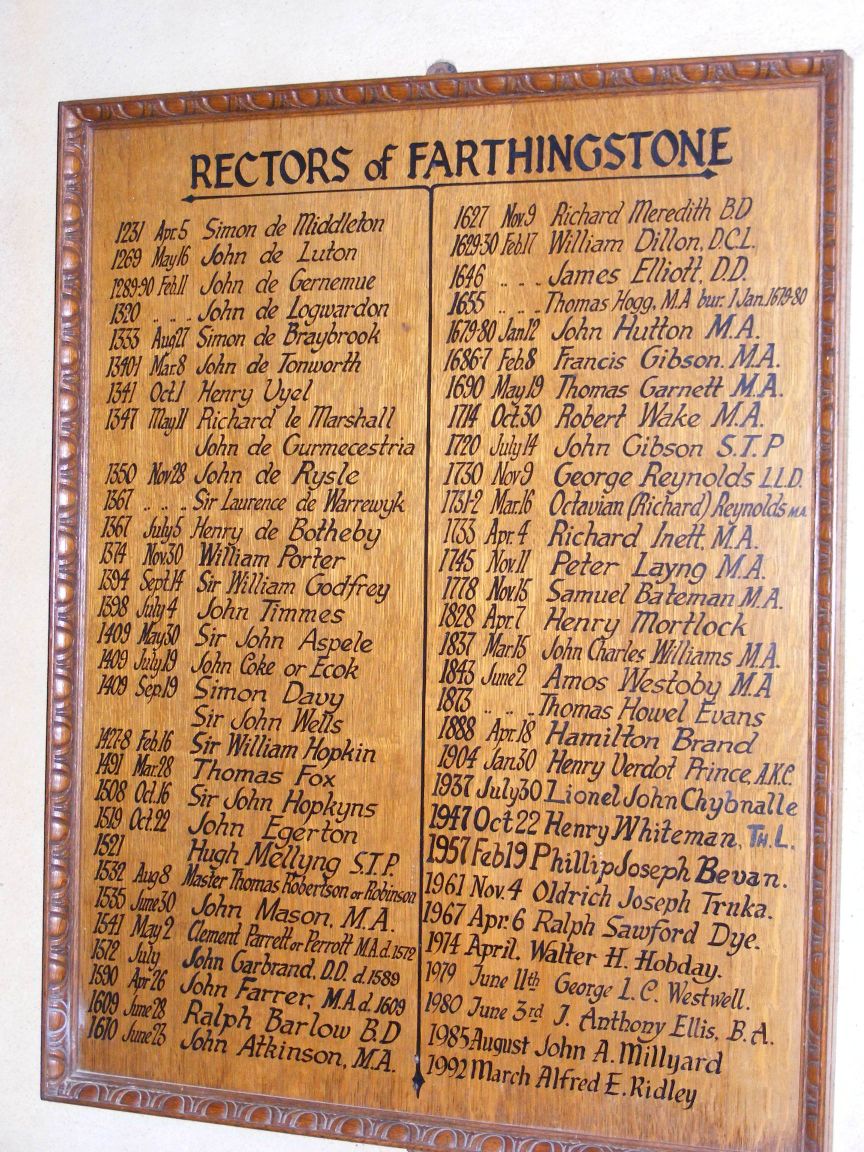 RECTORS of FARTHINGSTONE
1231 Apr.5 Simon de Middleton
1269 May16 John de Luton
1289-90 Feb.11 John de Gernemue
1320 ... John de Logwardon
1333 Aug27 Simon de Braybrook
1340-1 Mar.8 John de Tonworth
1341 Oct.1 Henry Vyel
1347 May11 Richard le Marshall
John de Gurmecestria
1350 Nov28 John de Rysle
1367 ... Sir Laurence de Warrewyk
1367 July5 Henry de Botheby
1374 Nov.30 William Porter
1394 Sept.14 Sir William Godfrey
1398 July4 John Timmes
1409 May30 Sir John Aspele
1409 July.19 John Coke or Ecok
1409 Sep.19 Simon Davy
Sir John Wells
1427-8 Feb.16 Sir William Hopkin
1491 Mar.28 Thomas Fox
1508 Oct.16 Sir John Hopkyns
1519 Oct.22 John Egerton
1521 Hugh Mellyng S.T.P.
1532 Aug8 Master Thomas Robertson or Robinson
1535 June30 John Mason, M.A.
1541 May2 Clement Parrett or Perrott M.A.d.1572
1572 July John Garbrand, D.D. d.1589
1590 Apr26 John Farrer, M.A.d.1609
1609 June28 Ralph Barlow B.D
1610 June23 John Atkinson, M.A.
1627 Nov.9 Richard Meredith B.D
1629-30 Feb.17 William Dillon, D.C.L.
1646 ... James Elliott, D.D.
1655 ... Thomas Hogg, M.A bur. 1 Jan.1679-80
1679-80 Jan12 John Hutton M.A.
1686-7 Feb8 Francis Gibson. M.A.
1690 May19 Thomas Garnett M.A.
1714 Oct.30 Robert Wake M.A.
1720 July14 John Gibson S.T.P
1730 Nov9 George Reynolds L.L.D.
1731-2 Mar.16 Octavian (Richard) Reynolds M.A.
1733 Apr.4 Richard Inett, M.A.
1745 Nov.11 Peter Layng M.A.
1778 Nov.15 Samuel Bateman M.A.
1828 Apr.7 Henry Mortlock
1837 Mar.15 John Charles Williams M.A.
1843 June2 Amos Westoby M.A
1873 ... Thomas Howel Evans
1888 Apr.18 Hamilton Brand
1904 Jan30 Henry Verdot Prince, A.K.C.
1937 July30 Lionel John Chybnalle
1947 Oct 22 Henry Whiteman, TH.L.
1957 Feb19 Phillip Joseph Bevan.
1961 Nov.4 Oldrich Joseph Trnka.
1967 Apr.6 Ralph Sawford Dye.
1974 April. Walter H. Hobday.
1979 June 11th George L.C. Westwell.
1980 June 3rd J. Anthony Ellis, B.A.
1985 August John A. Millyard
1992 March Alfred E. Ridley